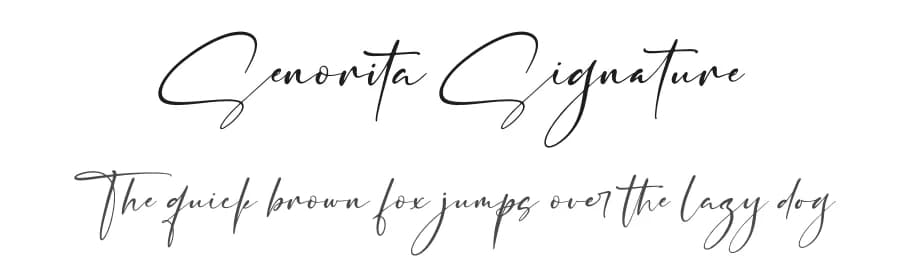 Senorita Signature
The quick brown fox jumps over the lazy dog